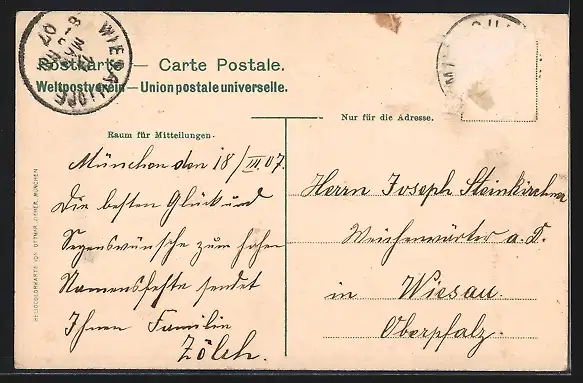 Postkarte — Carte Postale.
Weltpostverein — Union postale universelle.
Nur für die Adresse.
Raum für Mitteilungen.
München den 18/III. 07.
Die besten Glück und
Segenswünsche zum hohen
Namensfeste sendet
Ihnen Familie
Zölch.
Herrn Joseph Steinkirchner
Weichenwärter a. D.
in Wiesau.
Oberpfalz.
07
HELIOCOLORKARTE VON OTTMAR ZIEHER, MÜNCHEN